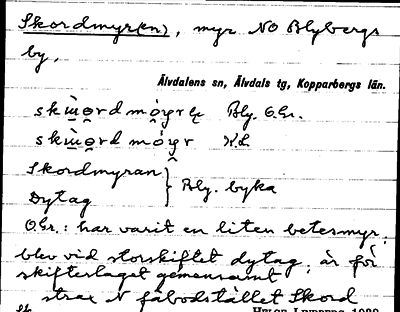 Skordmyr(en), myr NO Blybergs
by.
Älvdalens sn, Älvdals tg, Kopparbergs län.
Bly. O.Gr.
K.L
Skordmyran
Dytag
Bly. byka
O.Gr.: har varit en liten betesmyr;
blev vid storskiftet dytag; är för
skifteslaget gemensamt
strax N fäbodstället Skord